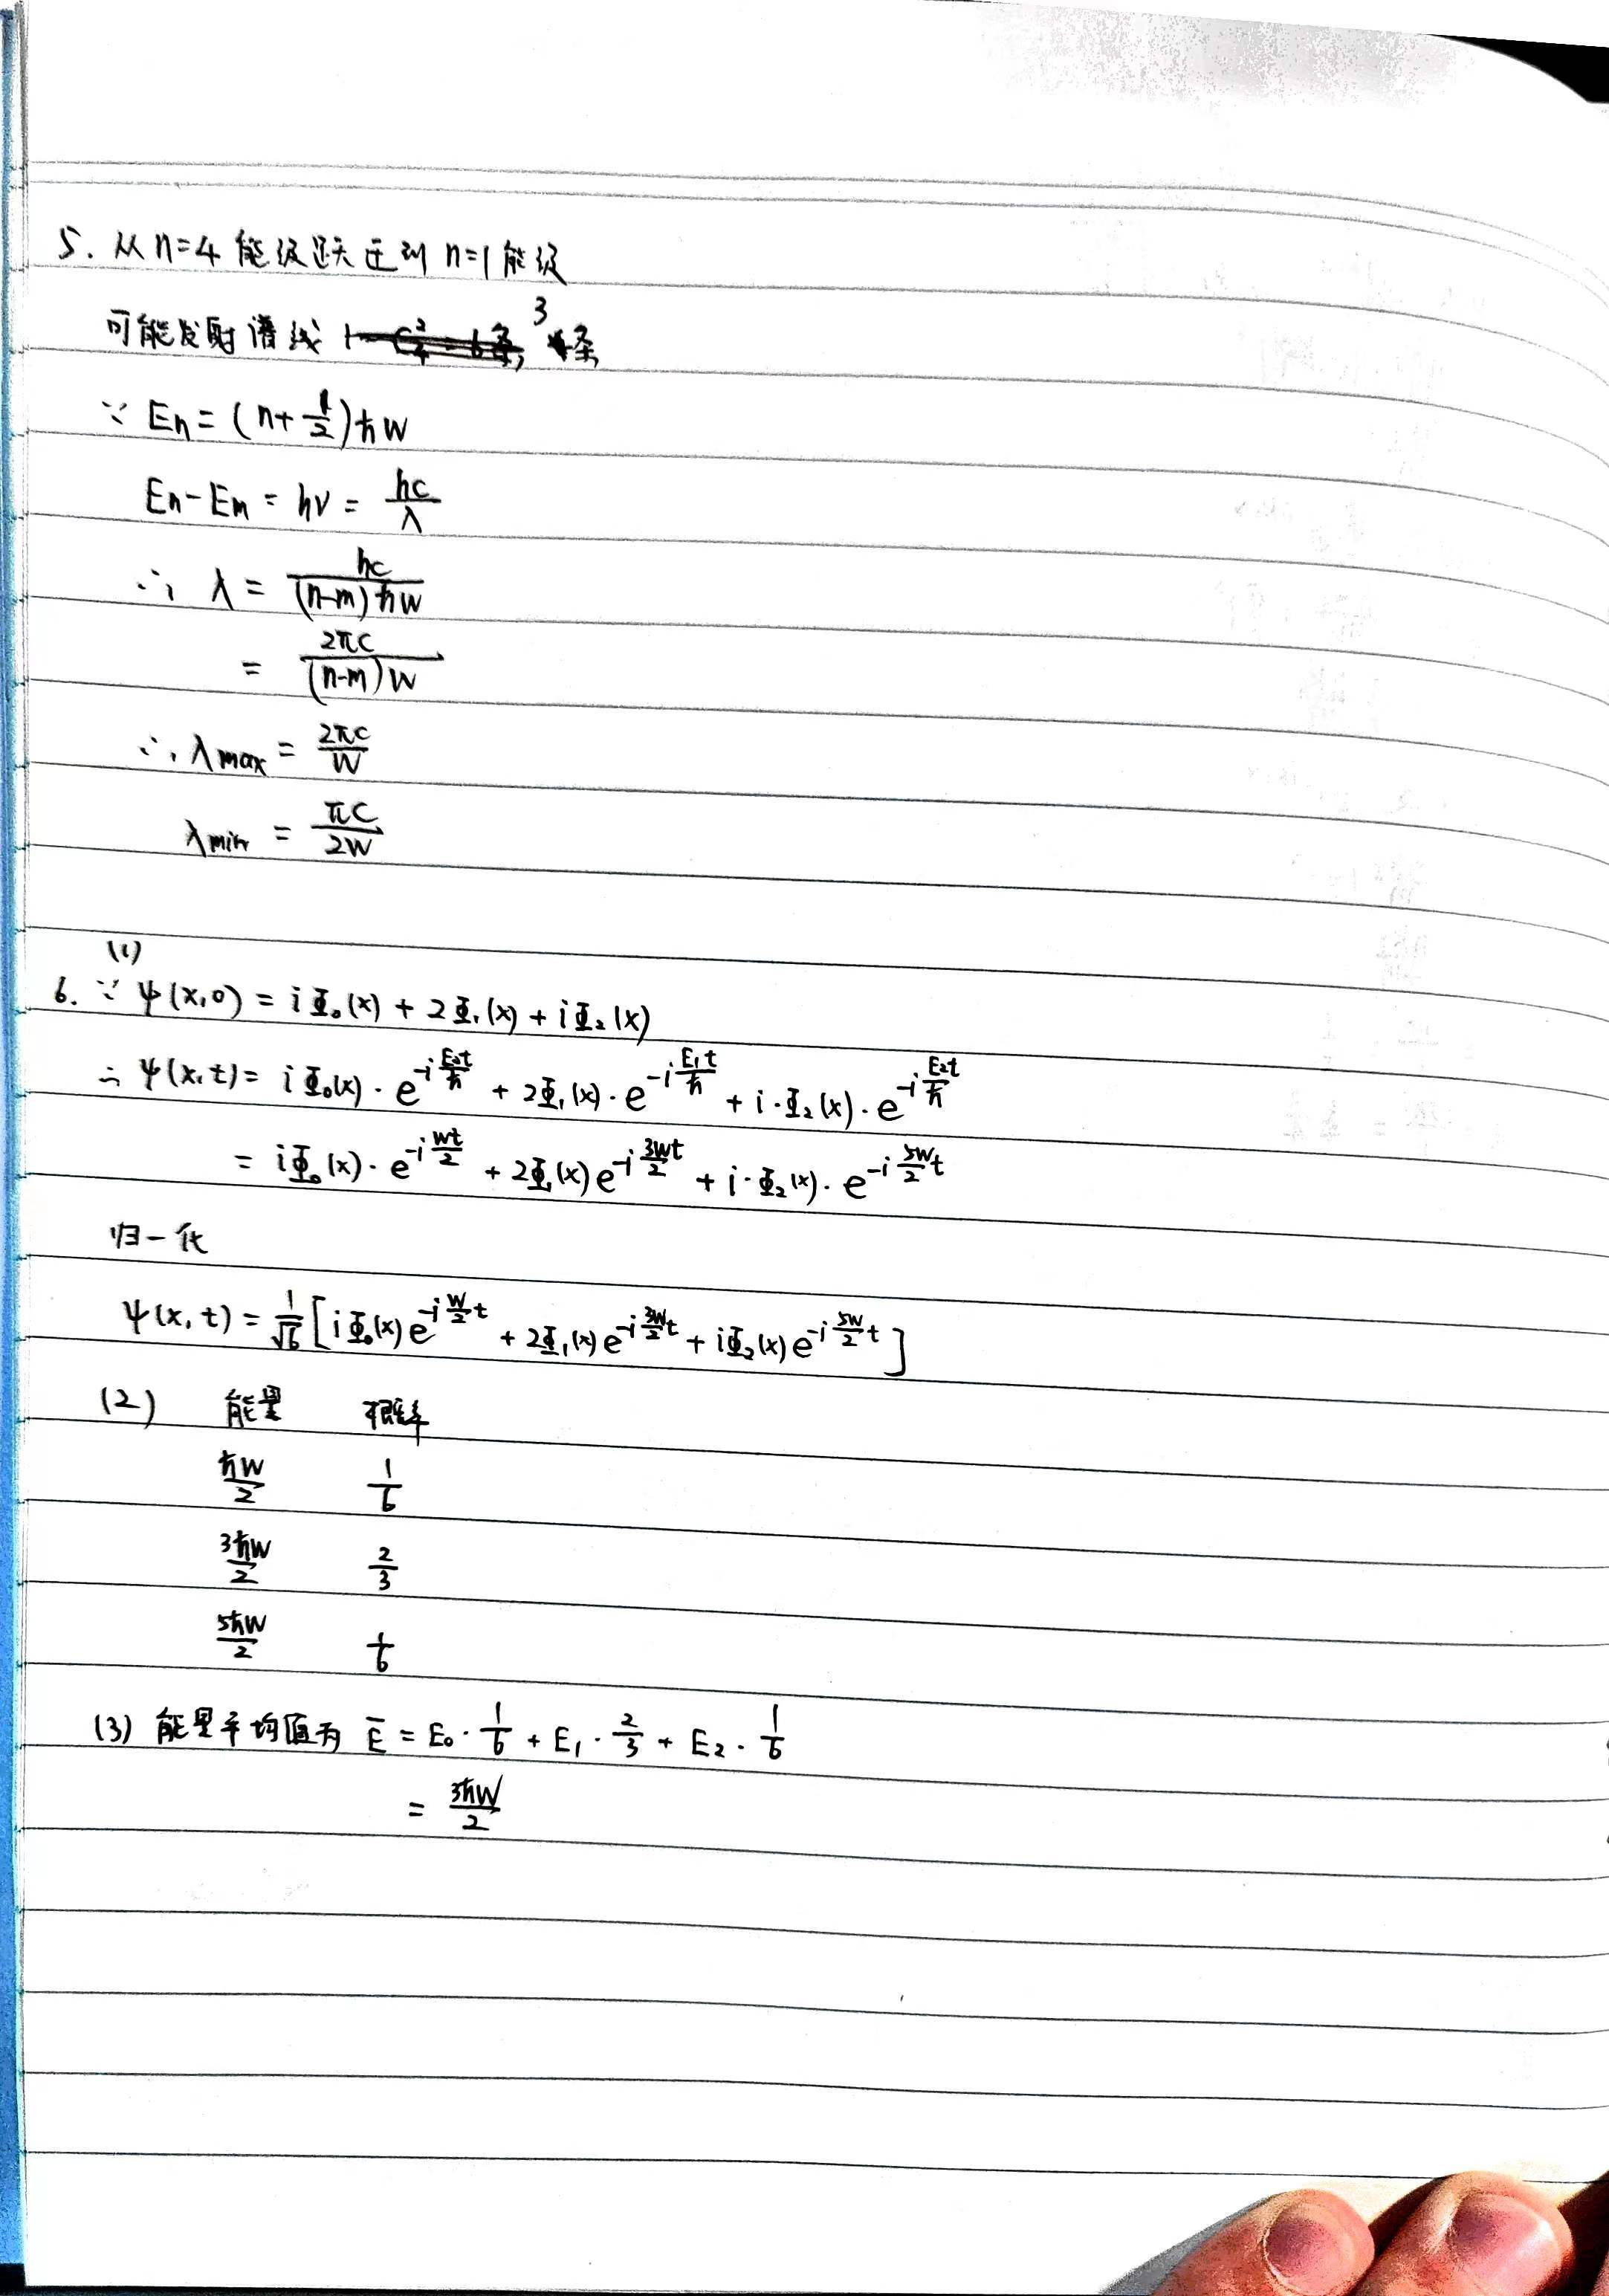 5. 从 n=4 能级跃迁到 n=1 能级
可能发射谱线 3 条
∵ En = (n+1/2)ħw
En-Em = hν = hc/λ
∴ λ = hc/((n-m)ħw)
= 2πc/((n-m)w)
∴ λmax = 2πc/w
λmin = πc/2w
(1)
6. ∵ ψ(x,0) = iΦ₀(x) + 2Φ₁(x) + iΦ₂(x)
∴ ψ(x,t) = iΦ₀(x)·e^(-i E₀t/ħ) + 2Φ₁(x)·e^(-i E₁t/ħ) + i·Φ₂(x)·e^(-i E₂t/ħ)
= iΦ₀(x)·e^(-i wt/2) + 2Φ₁(x)e^(-i 3wt/2) + i·Φ₂(x)·e^(-i 5w/2 t)
归一化
ψ(x,t) = 1/√6 [iΦ₀(x)e^(-i w/2 t) + 2Φ₁(x)e^(-i 3w/2 t) + iΦ₂(x)e^(-i 5w/2 t)]
(2) 能量 概率
ħw/2 1/6
3ħw/2 2/3
5ħw/2 1/6
(3) 能量平均值为 Ē = E₀·1/6 + E₁·2/3 + E₂·1/6
= 3ħw/2